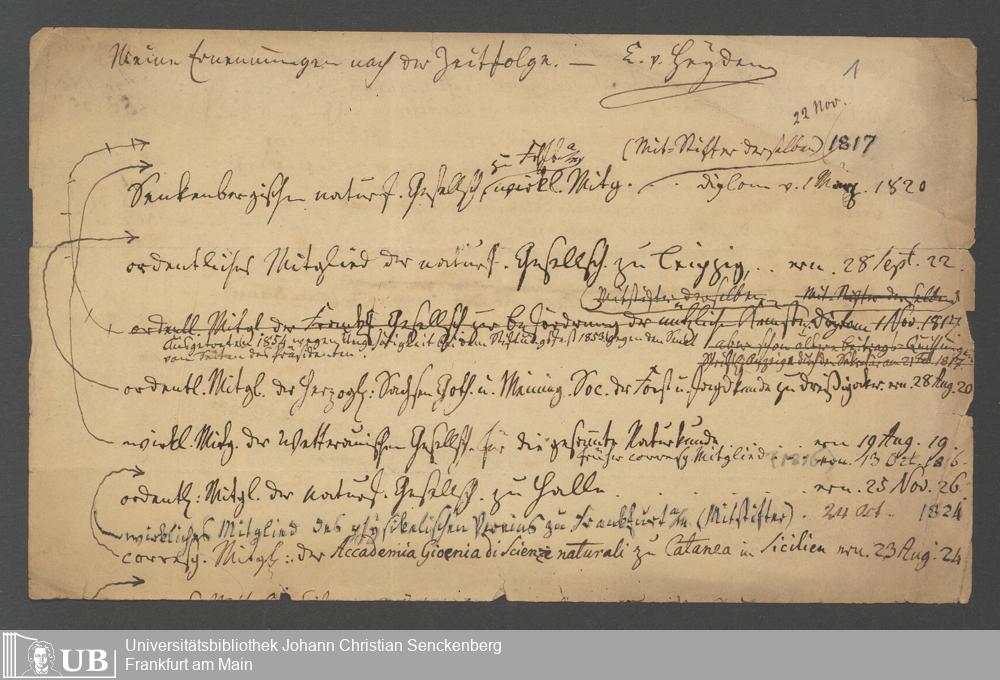 Meine Ernennungen nach der Zeitfolge. — E. v. Heyden
1
22 Nov.
(Mit-Stifter derselben) 1817
zu Frkft a/m
Senkenbergische naturf. Gesellsch. wirkl. Mitg. diplom v. 1 März. 1820
ordentliches Mitglied der naturf. Gesellsch. zu Leipzig, .. ern. 28 Sept. 22.
(Mitstifter derselben Mit-Stifter derselben)
ordentl. Mitgl. der Frankf. Gesellsch. zur Beförderung der nützlichen Künste. Diplom 1 Nov. 1817
Ausgetreten 1854 wegen gegen den
von Seiten des Präsidenten
ordentl. Mitgl. der Herzogl: Sachsen Goth. u. Meining. Soc. der Forst u. Jagdkunde zu Dreißigacker ern. 28 Aug. 20
wirkl. Mitg. der Wetterauischen Gesellsch. für die gesammte Naturkunde . . . ern 19 Aug. 19.
früher corresp. Mitglied (1816) ern. 13 Oct. 1816.
ordentl: Mitgl. der naturf. Gesellsch. zu Halle . . . . ern. 25 Nov. 26.
wirkliches Mitglied des physikalischen Vereins zu Frankfurt a/m (Mitstifter) . 24 Oct. 1824
corresp. Mitgl: der Accademia Gioenia di Scienze naturali zu Catanea in Sicilien ern. 23 Aug. 24
UB
Universitätsbibliothek Johann Christian Senckenberg
Frankfurt am Main